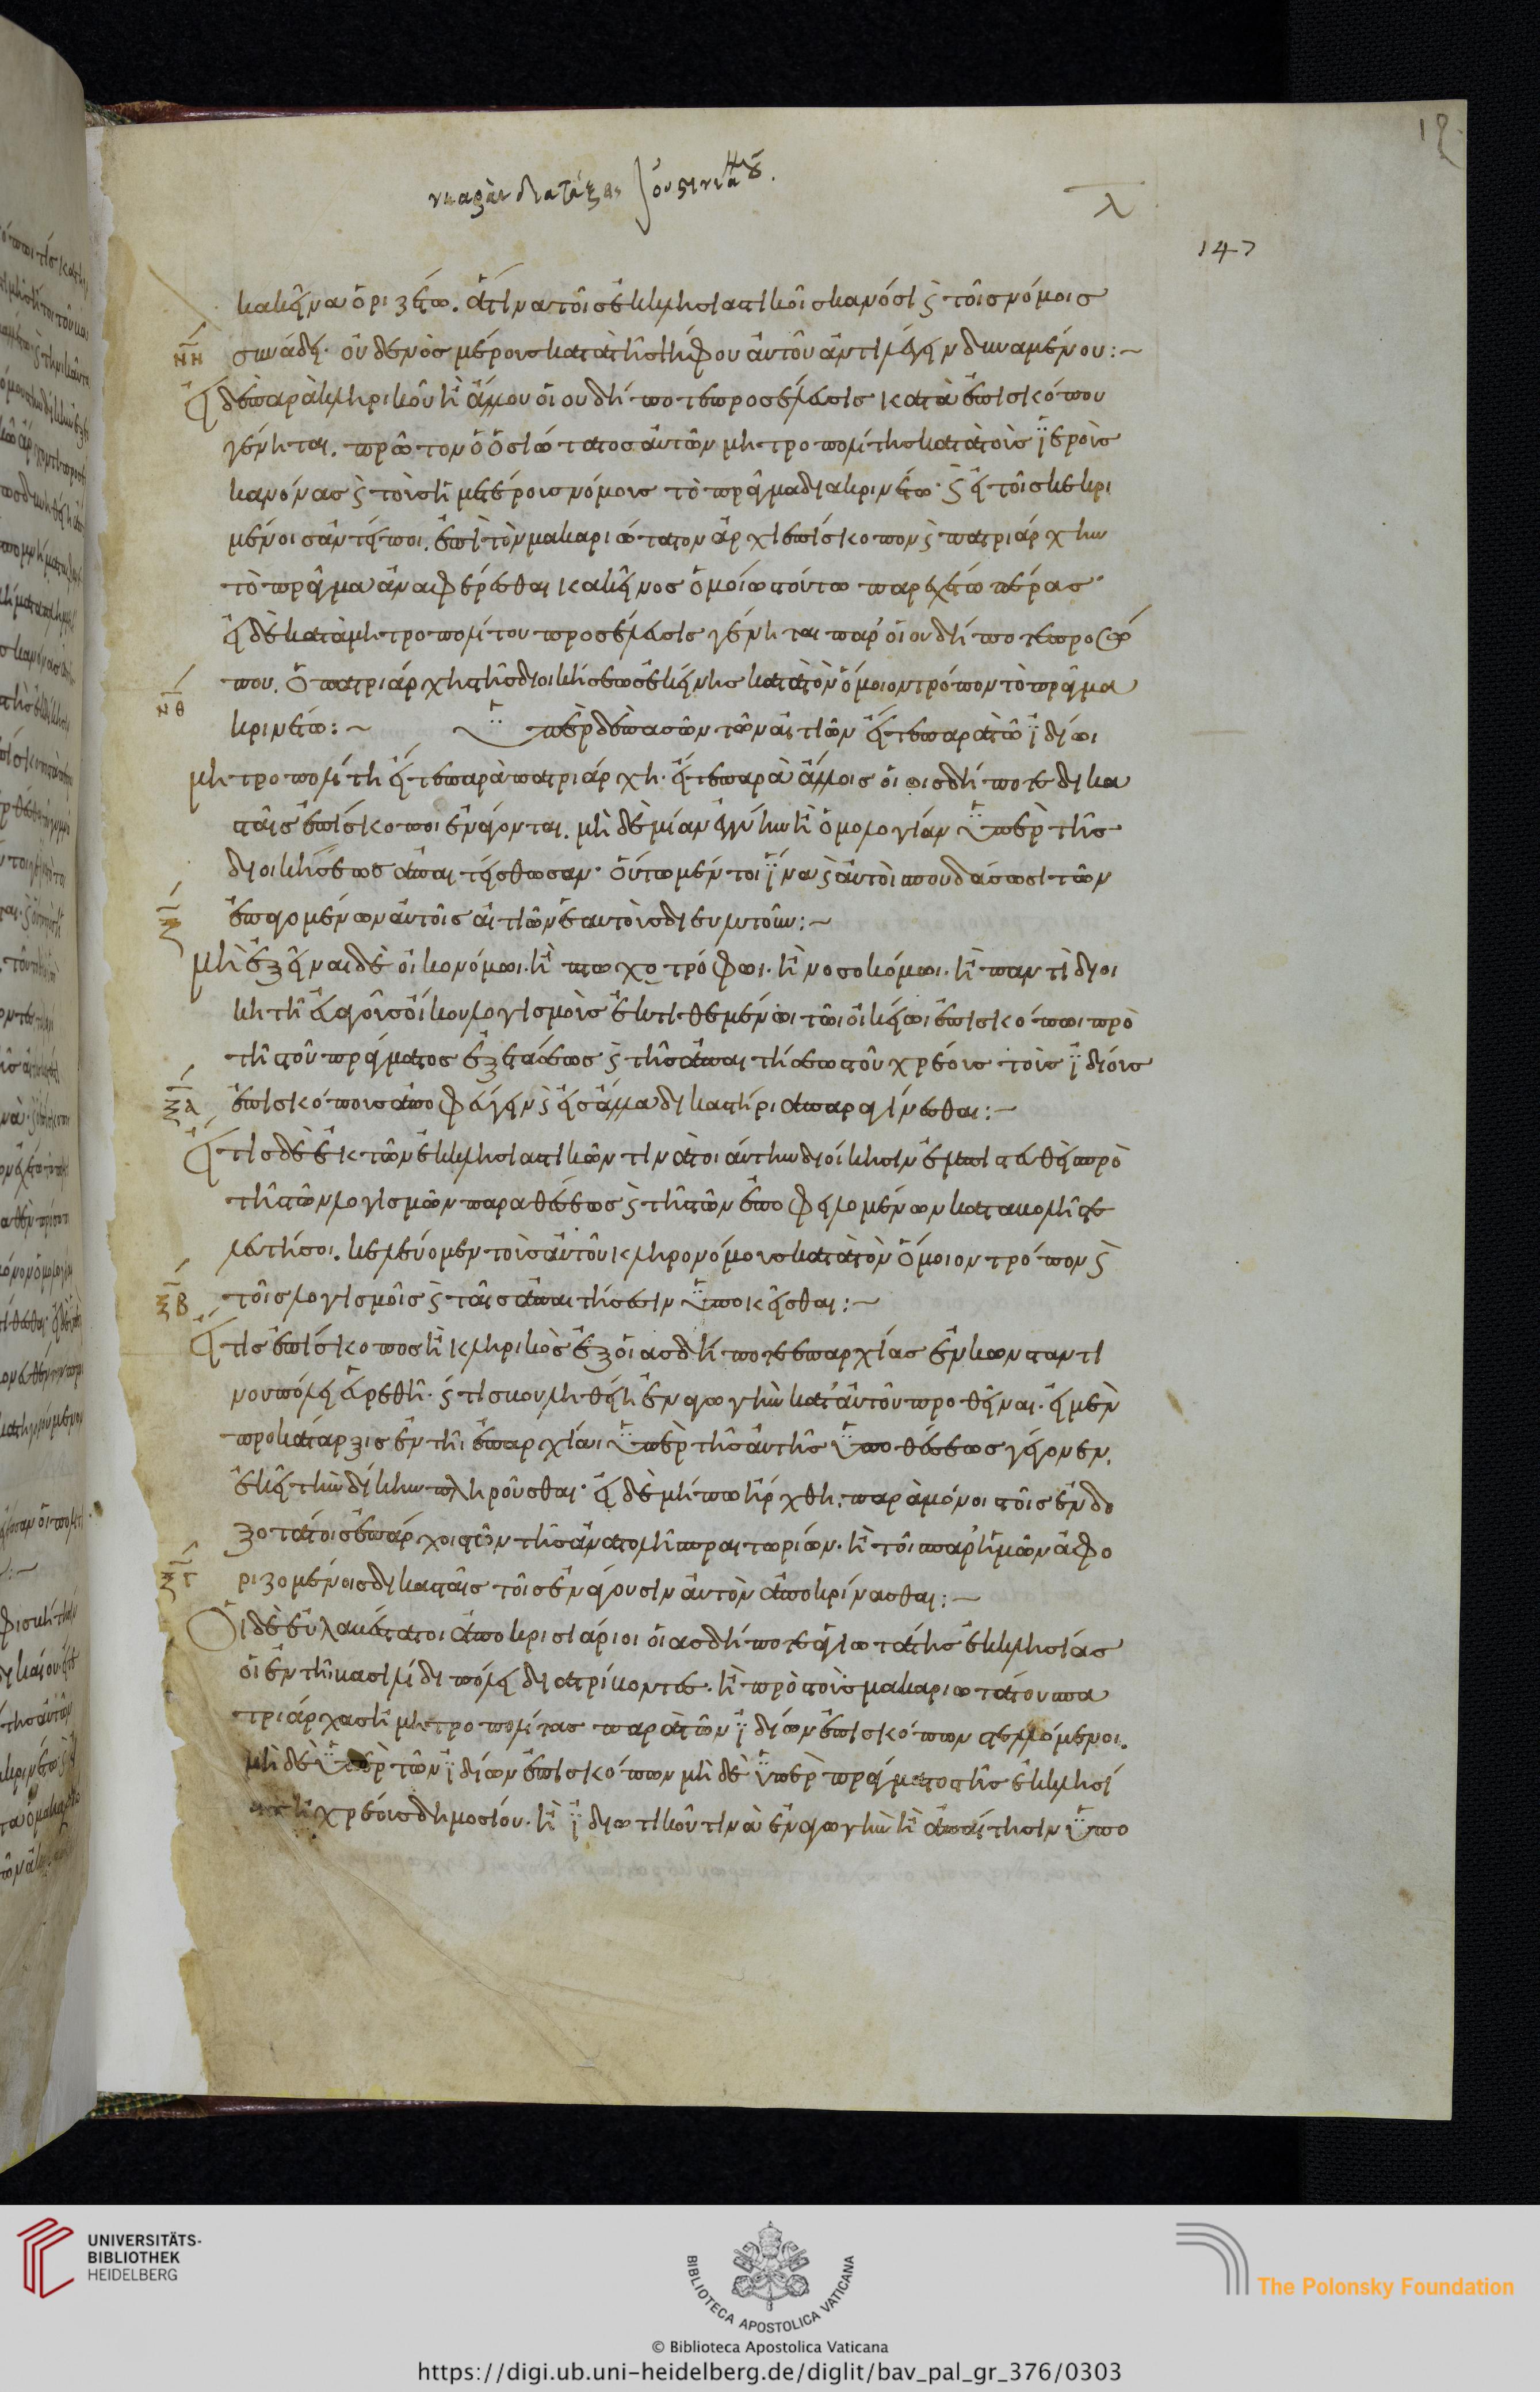 νεαραὶ διατάξεις Ἰουστινιανοῦ.
λ
147
κακεῖνα ὁριζέτω. ἅτινα τοῖς ἐκκλησιαστικοῖς κανόσι καὶ τοῖς νόμοις
νη
συνάδει· οὐδενὸς μέρους κατὰ τῆς ψήφου αὐτοῦ ἀντιλέγειν δυναμένου:~
Εἰ δὲ παρὰ κληρικοῦ ἢ ἄλλου οἱουδήποτε προσέλευσις κατὰ ἐπισκόπου
γένηται. πρῶτον ὁ ὁσιώτατος αὐτῶν μητροπολίτης κατὰ τοὺς ϊεροὺς
κανόνας καὶ τοὺς ἡμετέρους νόμους τὸ πρᾶγμα διακρινέτω· καὶ εἰ τοῖς κεκρι
μένοις ἀντείποι. ἐπὶ τὸν μακαριώτατον ἀρχιεπίσκοπον καὶ πατριάρχην
τὸ πρᾶγμα ἀναφέρεσθαι κακεῖνος ὁμοίως τούτω παρεχέτω πέρας·
εἰ δὲ κατὰ μητροπολίτου προσέλευσις γένηται παρ' οἱουδήποτε προσώ
που. ὁ πατριάρχης τῆς διοικήσεως ἐκείνης κατὰ τὸν ὅμοιον τρόπον τὸ πρᾶγμα
νθ
κρινέτω:~ Ϋπὲρ δὲ πασῶν τῶν αἰτιῶν εἴτε παρὰ τῶ ϊδίωι
μητροπολίτη εἴτε παρὰ πατριάρχη· εἴτε παρὰ ἄλλοις οἱοισδήποτε δικα
σταῖς ἐπίσκοποι ἐνάγονται. μὴ δὲ μίαν ἐγγύην ἢ ὁμολογίαν ϋπὲρ τῆς
διοικήσεως ἀπαιτείσθωσαν· οὕτω μέντοι ϊνα καὶ αὐτοὶ σπουδάσωσι τῶν
ξ
ἐπαγομένων αὐτοῖς αἰτιῶν ἑαυτοὺς διεκλυτοῦν:~
Μὴ ἐξεῖναι δὲ οἰκονόμωι. ἢ πτωχοτρόφωι. ἢ νοσοκόμωι. ἢ παντὶ διοι
κητῆ εὐαγοῦς οἴκου λογισμοὺς ἐκτιθεμένωι τῶι οἰκείωι ἐπισκόπωι πρὸ
τῆς τοῦ πράγματος ἐξετάσεως καὶ τῆς ἀπαιτήσεως τοῦ χρέους τοὺς ϊδίους
ξα
ἐπισκόπους ἀποφεύγειν καὶ εἰς ἄλλα δικαστήρια παραγίνεσθαι:~
Εἴ τις δὲ ἐκ τῶν ἐκκλησιαστικῶν τινὰ τοιαύτην διοίκησιν ἐμπιστευθεὶς πρὸ
τῆς τῶν λογισμῶν παραθέσεως καὶ τῆς τῶν ἐποφειλομένων καταβολῆς τε
λευτήσοι. κελεύομεν τοὺς αὐτοῦ κληρονόμους κατὰ τὸν ὅμοιον τρόπον καὶ
ξβ
τοῖς λογισμοῖς καὶ ταῖς ἀπαιτήσεσιν ϋποκεῖσθαι:~
Εἴ τις ἐπίσκοπος ἢ κληρικὸς ἐξ οἱασδήποτε ἐπαρχίας ἐν κωνσταντι
νουπόλει εὑρεθῆ. καί τις βουληθείη ἐναγωγὴν κατ' αὐτοῦ προθεῖναι. εἰ μὲν
προκατάρξις ἐν τῆι ἐπαρχίαι ϋπὲρ τῆς αὐτῆς ϋποθέσεως γέγονεν.
ἐκεῖ τὴν δίκην πληροῦσθαι· εἰ δὲ μήπω ἤρχθη. παρὰ μόνοις τοῖς ἐνδο
ξοτάτοις ἐπάρχοις τῶν τῆς ἀνατολῆς πραιτωρίων. ἢ τοῖς παρ' ἡμῶν ἀφο
ξγ
ριζομένοις δικασταῖς τοῖς ἐνάγουσιν αὐτὸν ἀποκρίνασθαι:~
Οἱ δὲ εὐλαβέστατοι ἀποκρισιάριοι οἱασδήποτε ἁγιωτάτης ἐκκλησίας
οἱ ἐν τῆι βασιλίδι πόλει διατρίβοντες. ἢ πρὸς τοὺς μακαριωτάτους πα
τριάρχας ἢ μητροπολίτας παρὰ τῶν ϊδίων ἐπισκόπων στελλόμενοι.
μὴ δὲ ϋπὲρ τῶν ϊδίων ἐπισκόπων μὴ δὲ ϋπὲρ πράγματος τῆς ἐκκλησί
ας ἢ χρέους δημοσίου. ἢ ϊδιωτικοῦ τινὰ ἐναγωγὴν ἢ ἀπαίτησιν ϋπο
UNIVERSITÄTS-
BIBLIOTHEK
HEIDELBERG
BIBLIOTECA APOSTOLICA VATICANA
The Polonsky Foundation
© Biblioteca Apostolica Vaticana
https://digi.ub.uni-heidelberg.de/diglit/bav_pal_gr_376/0303